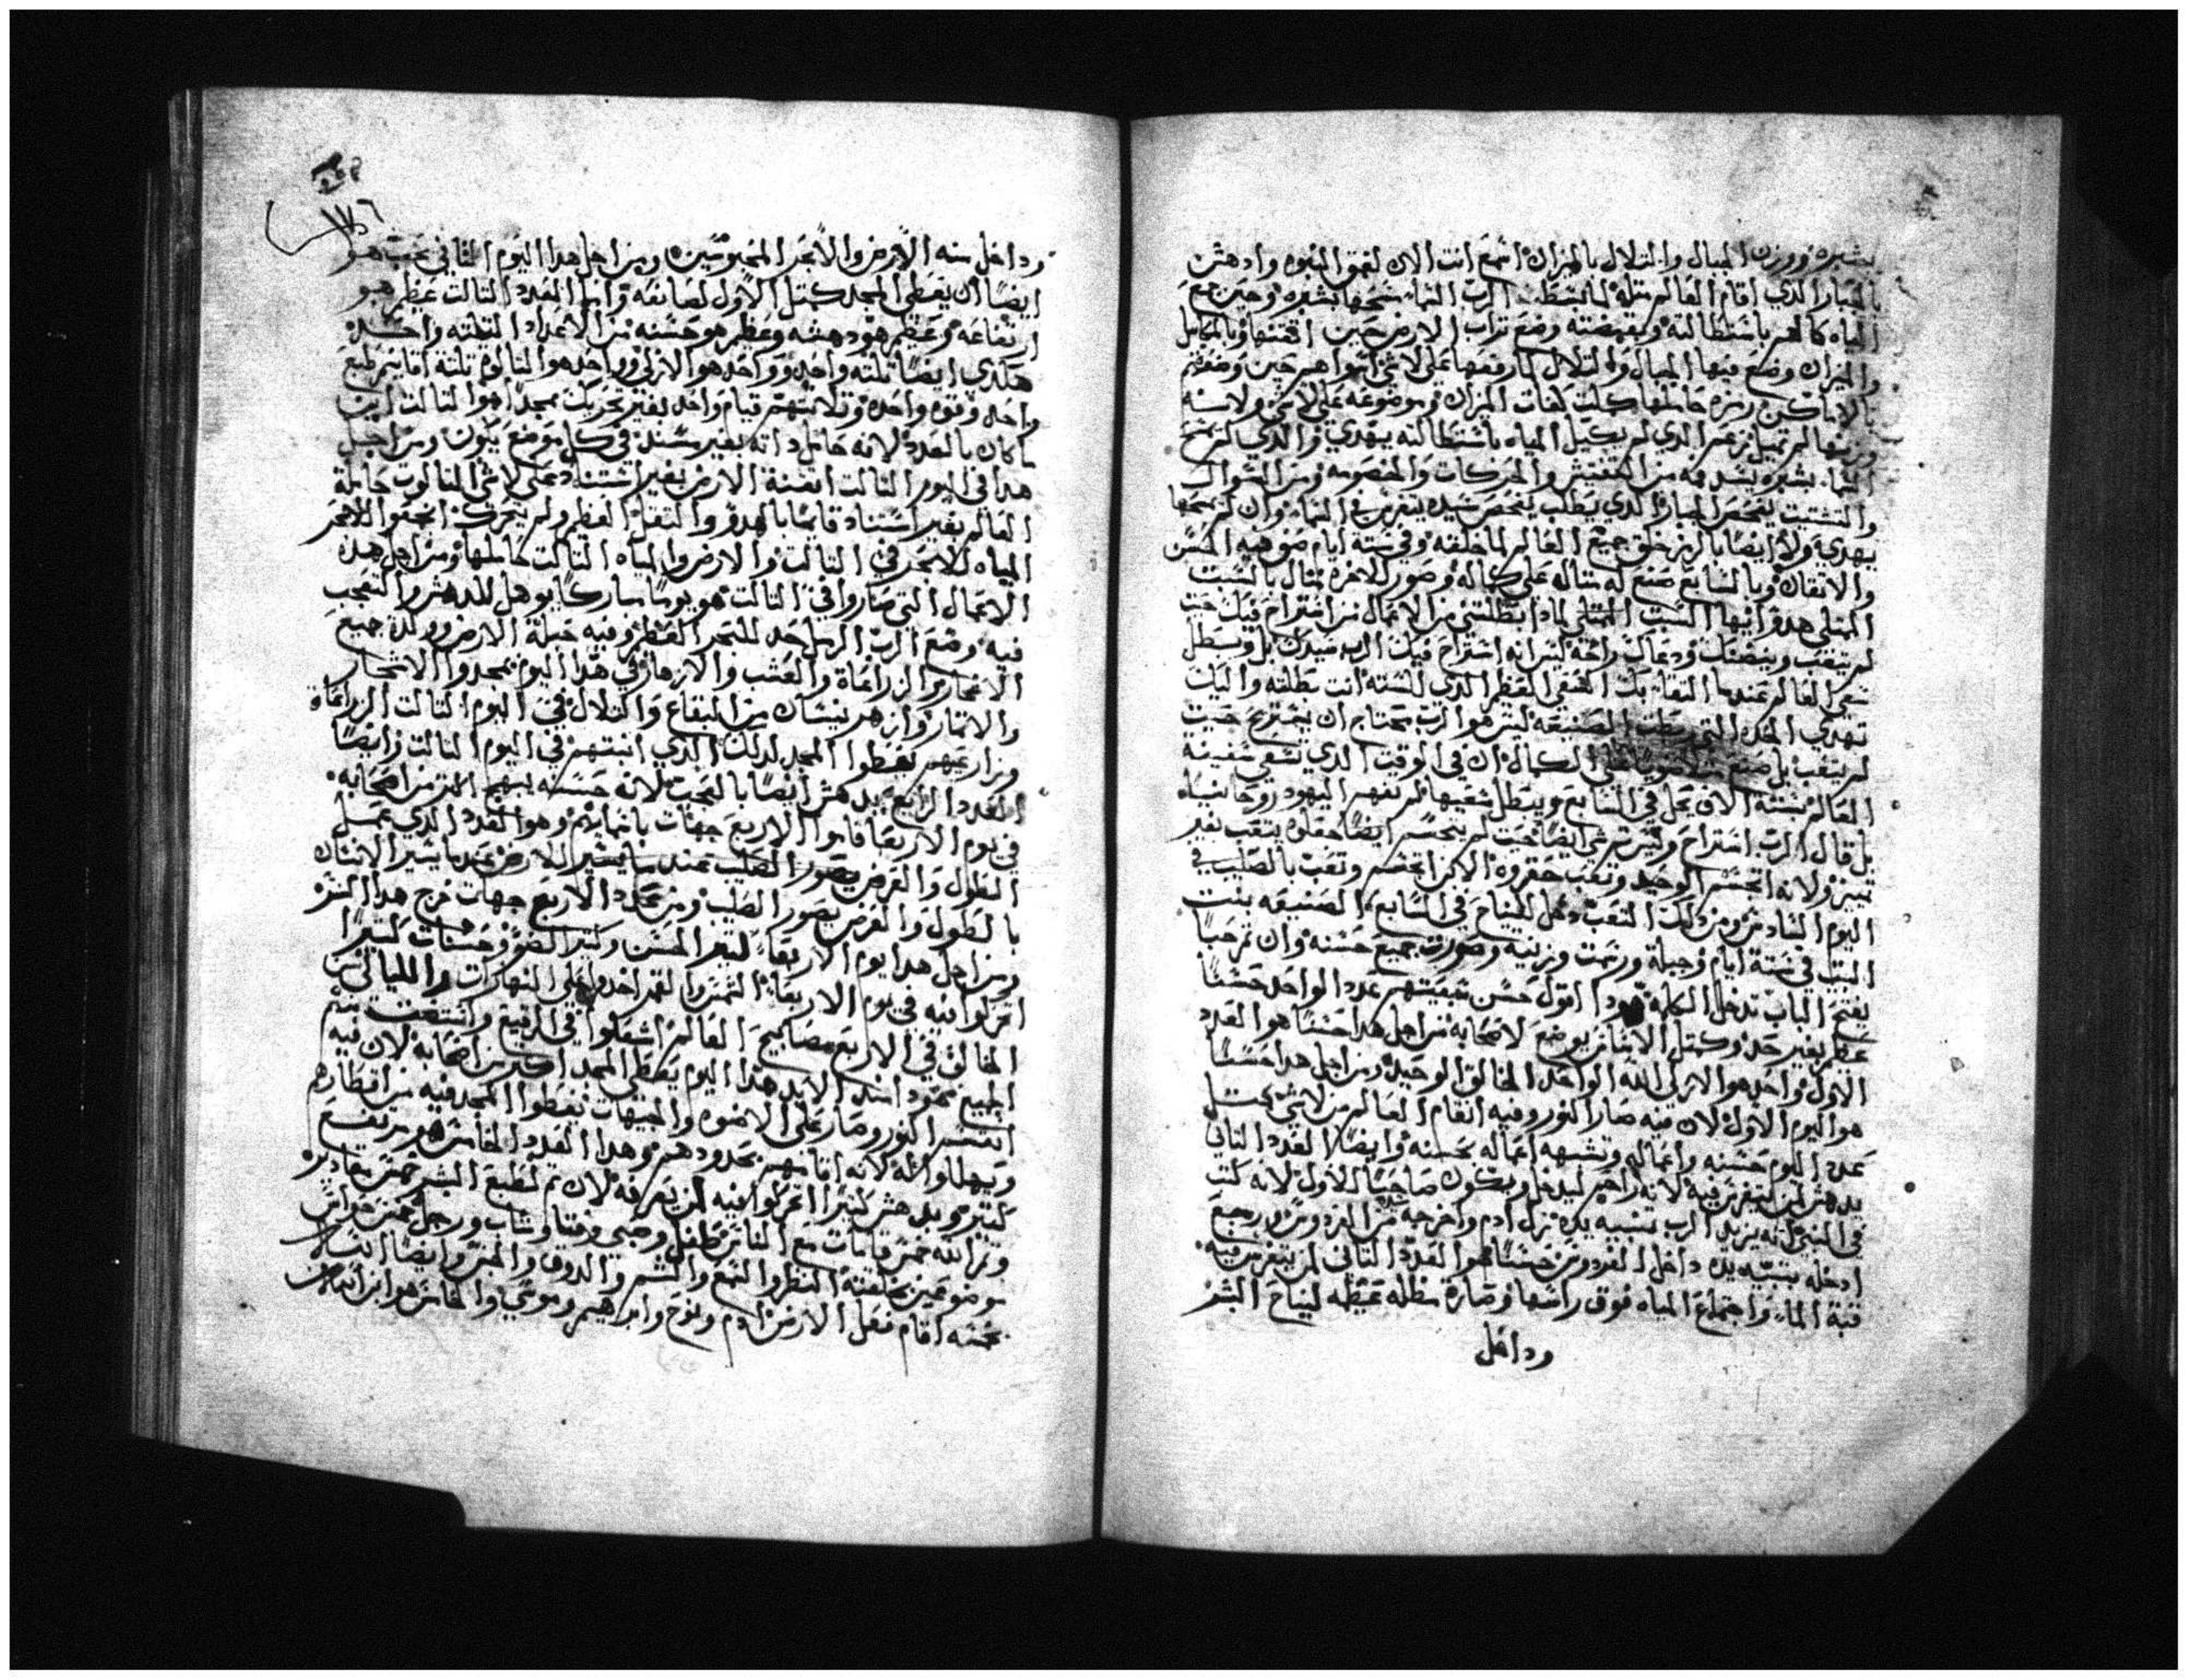 بشبره ووزن الجبال والتلال بالميزان اسمع انت الان لعمق النبوه وادهش
بالجبار الذي اقام العالم مثله لما بسط الرب السما مسحها بشبره وحين جمع
المياه كالعمر باستطالته وبقبضته وضع تراب الارض حين اتقنها وبالمكايل
والميزان وضع فيها الجبال والتلال لما رفعها على لا شي
بالاماكن رمزه حاملها كلت كفات الميزان وموضوعه على لا شي ولاسنه
لم تميل نزعم الذي لم يكيل المياه باستطالته يهدي والذي لم يمسح
السما بشبره يسد فمه من التفتيش والحركات والخصومه ومن السوال
والتشتت يفحص الجبار الذي يطلب يفحص سيده يتفرس في السما وان لم يمسحها
يهدي ولا ايضا بالرمز خلق جميع العالم لما خلقه وفي سته ايام صنع فيه الحسن
والاتقان وبالسابع صنع له مثاله على كماله وصور للاخره مثال بالسبت
الممتلي هدو ايها السبت الممتلي لماذا بطلتني من الاعمال من استراح فيك حيث
لم يتعب وينصتك ودعاك راحة ليس انه استراح فيك الرب سيدك بل وسطل
سعي العالم عندما التقا بك الخفي العظيم الذي للسته انت بطلته واليك
تهدي الحده التي الصنيعه ليس هو الرب محتاج ان يستريح حيث
لم يتعب بل صنع على الكمال ان في الوقت الذي سعي سفينه
العالم بستة الاف يحل في السابع ويبطل سعيها لم تفهم اليهود روحانياه
بل قال الرب استراح وليس شي ايضا حيث لم يتجسم ايضا حقلوه يتعب بغير
تميز ولانه اتجسم الوحيد وتعب حقروه الابن اتجسم وتعب بالصليب في
اليوم السادس ومن ذلك التعب دخل للنياح في السابع الصنيعه بنت
البيت في ستة ايام وجبلة ورتمت وزنيه وصورت جميع حسنه وان تم حبا
يفتح الباب تدخل الكلمه اقول حسن تبعيتهم عدد الواحد حسنا
عظيم بغير حد وكمثل الاساس يوضع لاصحابه من اجل هذا حسنا هو العدد
الاول وواحد هو الازلي الله الواحد الخالق الوحيد ومن اجل هذا حسنا
هو اليوم الاول لان فيه صار النور وفيه اتقام العالم من لا شي
عدد اليوم حسنه واعماله وتشبهه اعماله بحسنه وايضا العدد الثاني
يدهش لمن يتفرس فيه لانه زاحم ليدخل ويكون صاحبا للاول لانه كتب
في النبي انه يزيد الرب تشبيه يده نزل ادم واخرجه من الفردوس ورجع
ادخله بتشبيه يده داخل الفردوس حسنا هو العدد الثاني لمن يتفرس فيه
قبة الما واجتماع المياه فوق راسها وصارة مظله عظيمه لنياح البشر
وداخل
وداخل منه الارض والابحر المحبوسين ومن اجل هذا اليوم الثاني بحب هو
ايضا ان يعطي المجد كمثل الاول لصانعه وايضا العدد الثالث عظيم هو
ارتفاعه وعظيم هو دهشه وعظيم هو حسنه من الاعداد الثلثه واحد
هكذي ايضا ثلثه واحد وواحد هو الازلي وواحد هو الثالوث ثلثة اقانيم طبع
واحد وقوه واحده وثلاثتهم قيام واحد بغير تحريك مجدا هو الثالث اين
ما كان بالعدد لانه حامل ذاته بغير سند في كل موضع يكون ومن اجل
هذا في اليوم الثالث اتقنة الارض بغير استناد على لا شي الثالوث حاملة
العالم بغير استناد قايما بالهدو والثقل العظيم ولم يتحرك اجتمعوا
المياه للابحر في الثالث والارض والمياه الثالث حاملها ومن اجل هذه
الاعمال التي صاروا في الثالث هو يوما مباركا يوهل للدهش والتعجب
فيه وضع الرب الرمل حد للبحر العظيم وفيه حبلة الارض وولدة جميع
الاشجار والزراعاة والعشب والازهار في هذا اليوم يمجدوا الاشجار
والاثمار وازهر ينشان من البقاع والتلال في اليوم الثالث الزراعاة
وزارعهم يعطوا المجد لذلك الذي انبتهم في اليوم الثالث وايضا
العدد الرابع يدهش ايضا بالتجت لان حسنه يبهج اكثر من اصحابه
في يوم الاربعا قاموا الاربع جهات باثمارهم وهو العدد الذي عمل
الطول والعرض يصور الصليب عندما يشير للارض عندما يشير الانسان
بالطول والعرض يصور الصليب ومن عدد الاربع جهات خرج هذا السر
ومن اجل هذا يوم الاربعا كثير الحسن وكثير الضو وحسنات كثيرا
اتحركوا فيه في يوم الاربعا الشمس والقمر اخدوا على النهارات والليالي
الخالق في الاربع مصابيح العالم اشعلوا في الرقيع واشتعت منهم
الجميع عمود اسند الابد هذا اليوم يعطي المجد اكثر من اصحابه لان فيه
انتشر النور وصار على الاضوه والجيهات يعطوا المجد فيه من اقطارهم
ويهللوا الله لانه اقامهم بحدودهم وهذا العدد الخامس هو مرتفع
كثير ويدهش كثيرا اتحركوا فيه لمن يعرفه لان تم لطبع البشر خمس مقادير
ومن الله خمس قامات مع الناس طفل وصبي وفتا وشاب ورجل خمس حواس
موضوعين بخلقته النظر والسمع والشم والدوق والجس وايضا
خمسه اقام فعل الارض ادم ونوح وابراهيم وموسي والخامس هو ابن الله